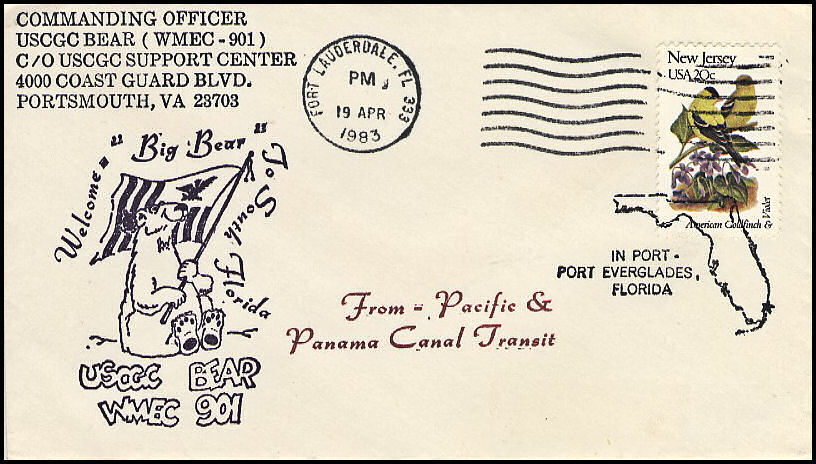 COMMANDING OFFICER
USCGC BEAR ( WMEC - 901 )
C/O USCGC SUPPORT CENTER
4000 COAST GUARD BLVD.
PORTSMOUTH, VA 23703
FORT LAUDERDALE, FL 333
PM
19 APR
1983
New Jersey
USA 20c
American Goldfinch &
Violet
Welcome = " Big Bear " To South Florida
IN PORT -
PORT EVERGLADES,
FLORIDA
From = Pacific &
Panama Canal Transit
USCGC BEAR
WMEC 901